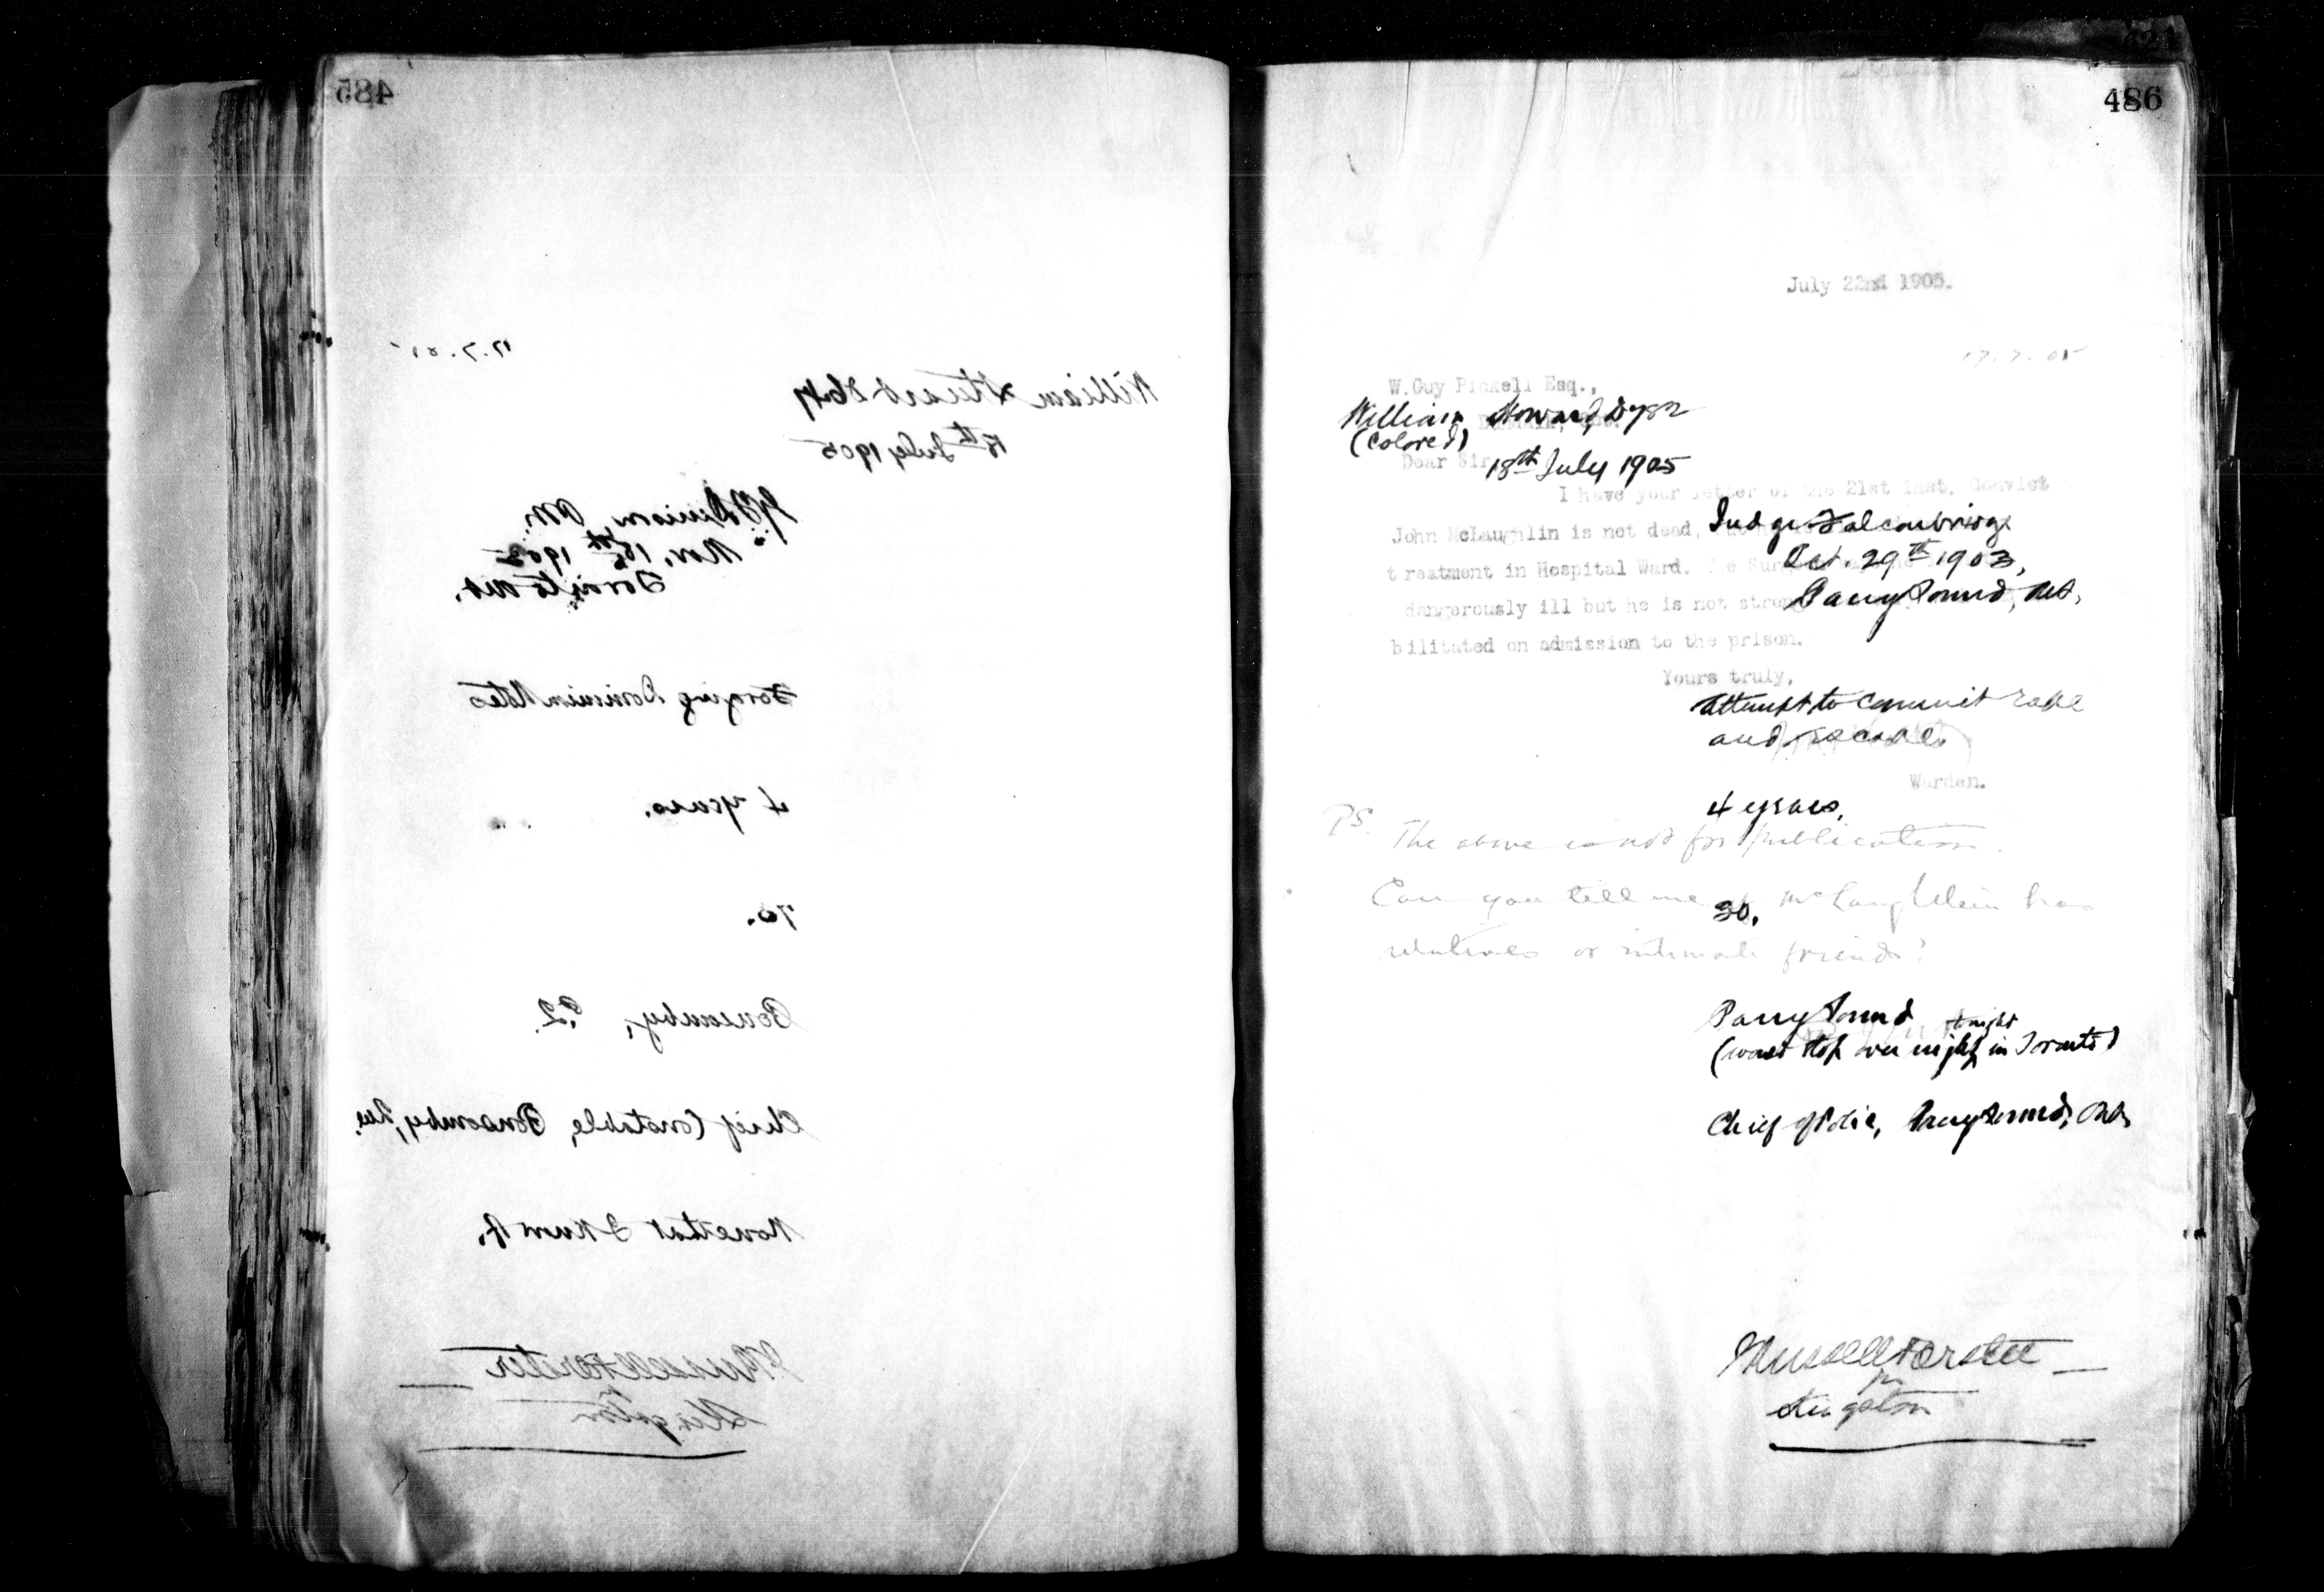 485
17.7.05
William Stuart
18th July 1905
Denison, P.M.
Nov. 18th 190
Toronto Ont.
Forging Dominion Notes
4 years.
70.
P.2.
Chief Constable, Que.
None that I know of.
Forster
Kingston
486
July 22nd 1905.
17.7.05
W.Guy Pickell Esq.,
William Howard Dyer
(Colored)
Dear Sir
18th July 1905
I have your letter of the 21st inst. Convict
Judge Falconbridge
John McLaughlin is not dead,
Oct. 29th 1903,
treatment in Hospital Ward. The
Parry Sound, Ont,
dangerously ill but he is not strong
bilitated on admission to the prison.
Yours truly,
Attempt to commit rape
and escape
Warden.
4 years,
P.S. The above is not for publication.
Can you tell me if McLaughlin has
30.
relatives or intimate friends?
Parry Sound
tonight
(would stop over night in Toronto)
Chief of Police, Parry Sound, Ont,
Forster
Kingston